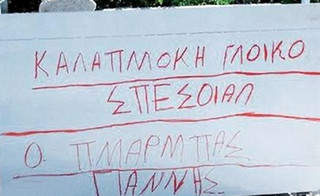 ΚΑΛΑΠΜΟΚΗ ΓΛΟΙΚΟ
ΣΠΕΣΟΙΑΛ
Ο ΠΜΑΡΜΠΑΣ
ΓΙΑΝΝΗΣ